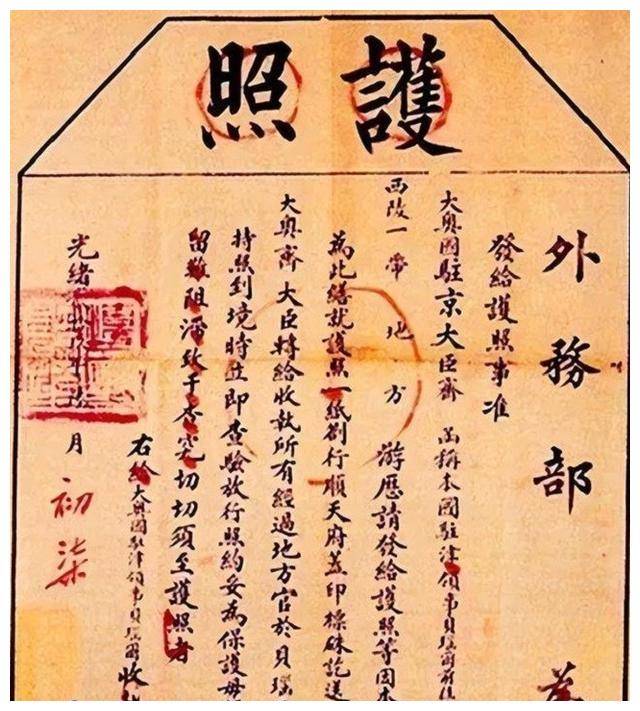 護照
外務部 為
發給護照事准
大奧國駐京大臣齊 函稱本國駐津領事貝瑙爾前往
西陵一帶地方 游歷請發給護照等因本
為此繕就護照一紙劄行順天府蓋印標硃訖送
大奧齊大臣轉給收執所有經過地方官於貝瑙
持照到境時立即查驗放行照約妥為保護毋
留難阻滯致干查究切切須至護照者
右給大奧國駐津領事貝瑙爾收執
光緒 月初柒